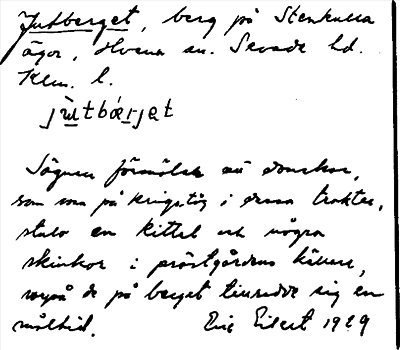 Jutberget, berg på Stenkulla
ägor, Hvena sn. Sevede hd.
Klm. l.
jùtbǽrjet
Sägnen förmäler att danskar,
som var på krigståg i dessa trakter,
stulo en kittel och några
skinkor i prästgårdens källare,
varpå de på berget tillredde sig en
måltid. Eric Eilert 1929